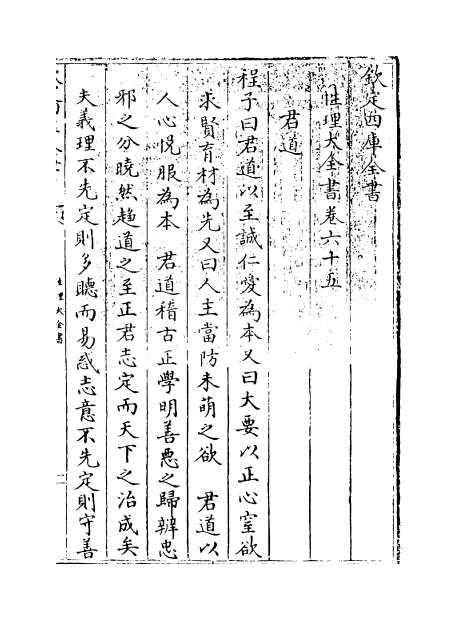 欽定四庫全書
性理大全書卷六十五
君道
程子曰君道以至誠仁愛為本又曰大要以正心窒欲
求賢育材為先又曰人主當防未萌之欲　君道以
人心悅服為本　君道稽古正學明善惡之歸辨忠
邪之分曉然趨道之至正君志定而天下之治成矣
夫義理不先定則多聽而易惑志意不先定則守善
性理大全書